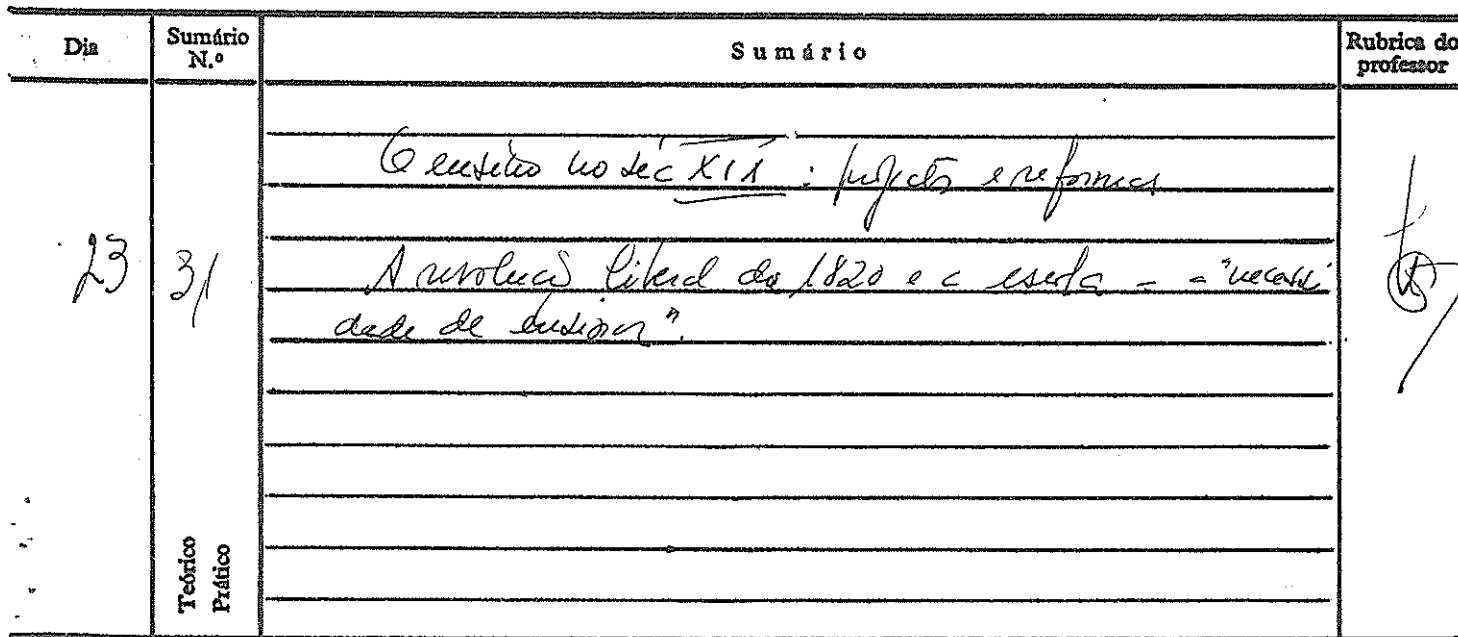 Dia
Sumário N.º
Sumário
Rubrica do professor
O ensino no séc XIX : projectos e reformas
23
31
A revolução liberal de 1820 e a escola - a "necessi
dade de ensinar".
Teórico
Prático